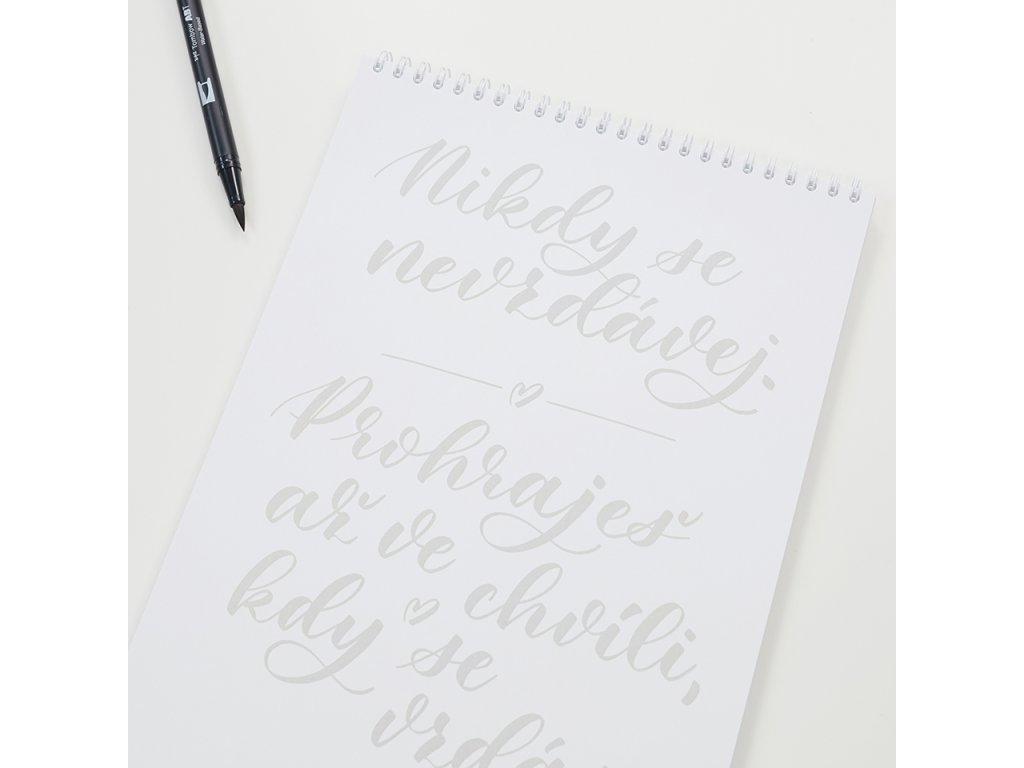 Nikdy se
nevzdávej.
Prohraješ
až ve chvíli,
kdy se
vzdá
Tombow ABT